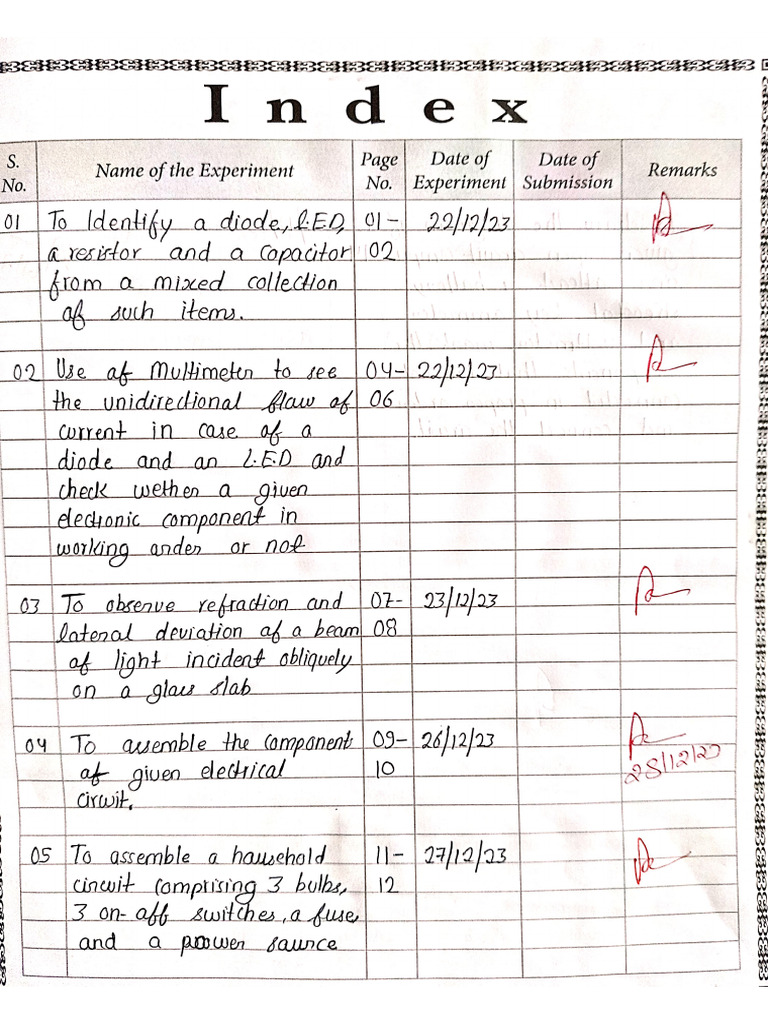 Index
S. No. Name of the Experiment Page No. Date of Experiment Date of Submission Remarks
01 To Identify a diode, L.E.D, 01- 22/12/23
a resistor and a capacitor 02
from a mixed collection
of such items.
02 Use of Multimeter to see 04- 22/12/23
the unidirectional flow of 06
current in case of a
diode and an L.E.D and
check wether a given
electronic component in
working order or not
03 To observe refraction and 07- 23/12/23
lateral deviation of a beam 08
of light incident obliquely
on a glass slab
04 To assemble the component 09- 26/12/23
of given electrical 10 28/12/23
circuit.
05 To assemble a household 11- 27/12/23
circuit comprising 3 bulbs, 12
3 on-off switches, a fuse
and a power source